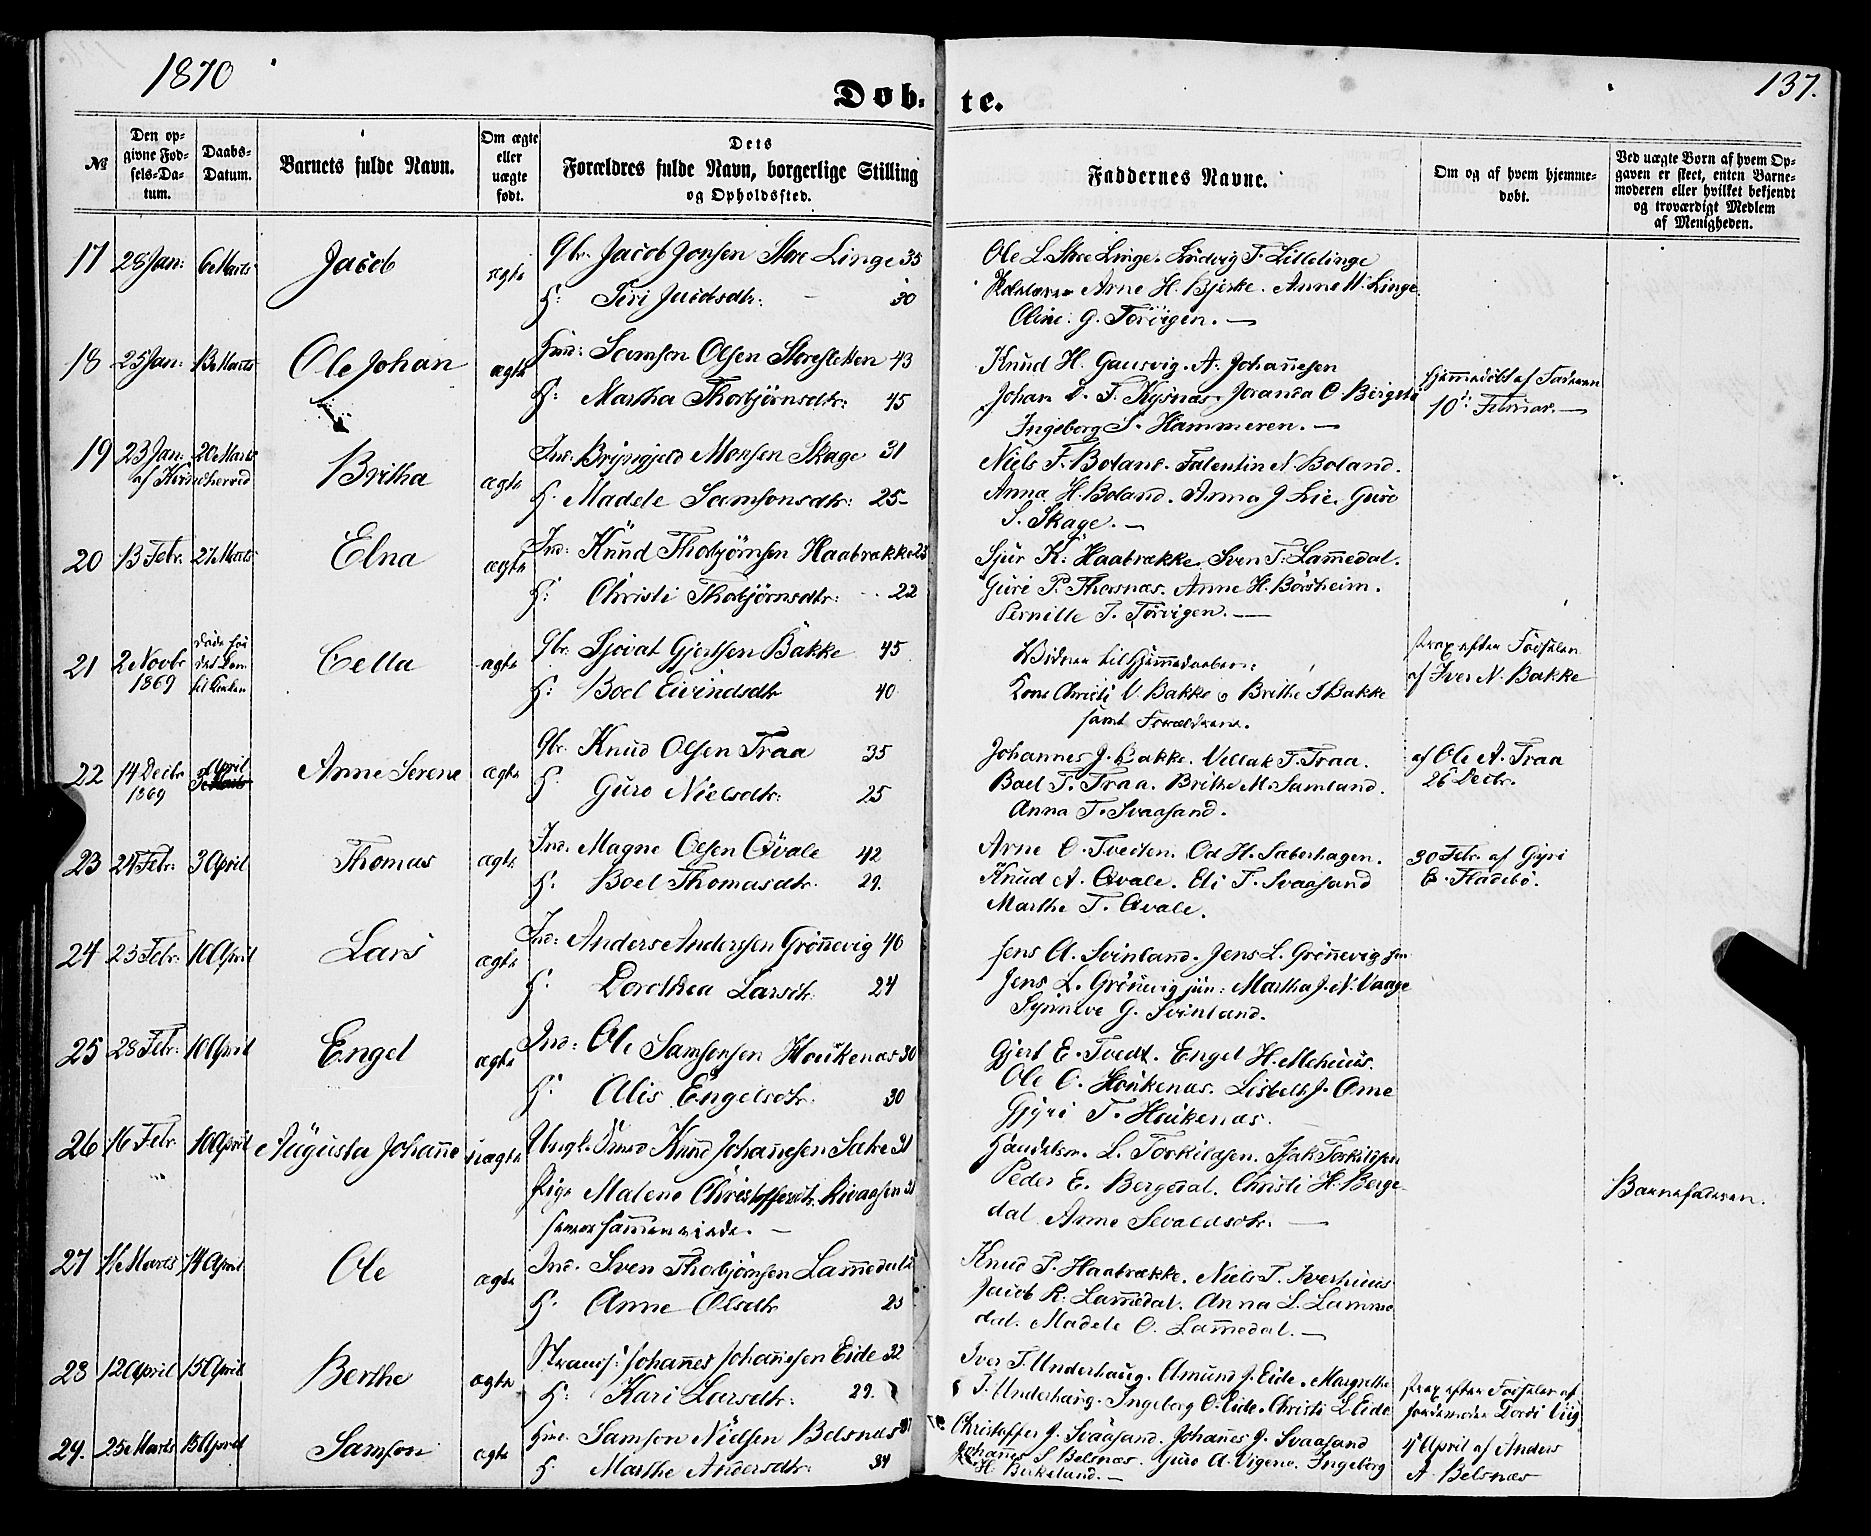 1870
137.
Døb- te.
№
Den op-
givne Fød-
sels-Da-
tum.
Daabs-
Datum.
Barnets fulde Navn.
Om ægte
eller
uægte
født.
Dets
Forældres fulde Navn, borgerlige Stilling
og Opholdssted.
Faddernes Navne.
Om og af hvem hjemme-
døbt.
Ved uægte Børn af hvem Op-
gaven er skeet, enten Barne-
moderen eller hvilket bekjendt
og troværdigt Medlem
af Menigheden.
17 28 Jan: 6 Marts Jacob ægte Gbr. Jacob Jonsen Store Linge 35
H: Siri Jacobsdtr: 30
Ole L. Store Linge. Ludvig T. Lillelinge
Arne H. Bjerke. Anne M. Linge
Oline G. Tørvigen.
18 25 Jan: 13 Marts Ole Johan ægte Huusm: Samson Olsen Storesletten 43
H: Martha Thorbjörnsdtr: 45
Knud H. Gausvig. A. Johannesen
Johan D. T. Kysnæs. Joranda O. Birgeli
Ingeborg S. Hammeren.
Hjemmedøbt af Faderen
10 Februar.
19 23 Jan: 20 Marts Britha ægte Ind: Brynjeld Monsen Skage 31
H. Madele Samsonsdtr: 25
Niels T. Boland. Falentin N. Boland.
Anna H. Boland. Anna J. Lie. Guro
S. Skage.
20 13 Febr. 27 Marts Elna ægte Ind: Knud Thorbjörnsen Haabrække 25
H: Christi Thorbjörnsdtr: 22
Sjur K: Haabrække. Sven T. Lammedal.
Guri P. Thorsnæs. Anne H. Borsheim.
Pernille T. Tørvigen.
21 2 Novbr 1869 Cella ægte Gbr. Sjovat Gjertsen Bakke 45
H: Boel Eivindsdtr 40
Vidner til Hjemmedaaben:
Kone Christi N. Bakke o Brithe S Bakke
samt Forældrene.
strax efter Fødselen
af Iver N. Bakke
22 14 Decbr 1869 3 April Anne Serene ægte Gbr. Knud Olsen Traa 35
H. Guro Nielsdtr: 25
Johannes J. Bakke. Vellak T. Traa.
Boel T. Traa. Brithe M. Samland.
Anna T. Svaasand.
af Ole A. Traa
26 Decbr.
23 24 Febr: 3 April Thomas ægte Ind. Magne Olsen Qvale 42
H: Boel Thomasdtr. 29.
Arne O. Tvedten. Od H. Sæberhagen.
Knud A. Qvale. Eli T. Svaasand
Marthe T. Qvale.
30 Febr. af Gyri
E. Fladebö.
24 23 Febr: 10 April Lars ægte Ind: Anders Anderssen Grönnevig 40
H. Dorothea Larsdtr. 24
Jens A. Svinland. Jens L. Grönnevig sen
Jens L. Grönnevig jun: Martha J. N. Vaage
Synneve G. Svinland.
25 28 Febr. 10 April Engel ægte Ind: Ole Samsonsen Haukenæs 30
H. Alis Engelsdtr. 30
Gjert E. Tvedt. Engel H. Mehuus.
Ole O. Haukenæs. Lisbeth J. Ome
Gjyri T. Haukenæs.
26 16 Febr. 10 April Augusta Johanne uægte Ungk. Knud Johannesen Sætre 31
Pige Malene Christoffersdtr. Rivaasen 31
Handelsm. L. Torkildsen. Isak Torkildsen
Peder E. Bergedal. Christi H. Berge-
dal. Anne Sevaldsdtr.
Barnefaderen.
27 11 Marts 14 April Ole ægte Ind. Sven Thorbjörnsen Lammedal
H. Anne Olsdtr 25
Knud T. Haabrække. Niels T. Iverhuus
Jacob R. Lammedal. Anna L. Lamme
dal. Madele O. Lammedal.
28 12 April 15 April Berthe ægte Strands: Johannes Johannesen Eide 32
H: Kari Larsdtr: 29.
Iver T. Underhaug. Amund J. Eide. Margrethe
T. Underhaug. Ingeborg O. Eide. Christi L Eide
strax efter Fødselen af
Jordemoder Dordi Viig
29. 25 Marts 15 April Samson ægte Huusm. Samson Nielsen Belsnæs
H. Marthe Andersdtr: 34
Christoffer J. Svaasand. Johannes J. Svaasand
Johannes S Belsnæs. Guro A. Vigene. Ingeborg
H. Birkeland.
4 April af Anders
A. Belsnæs